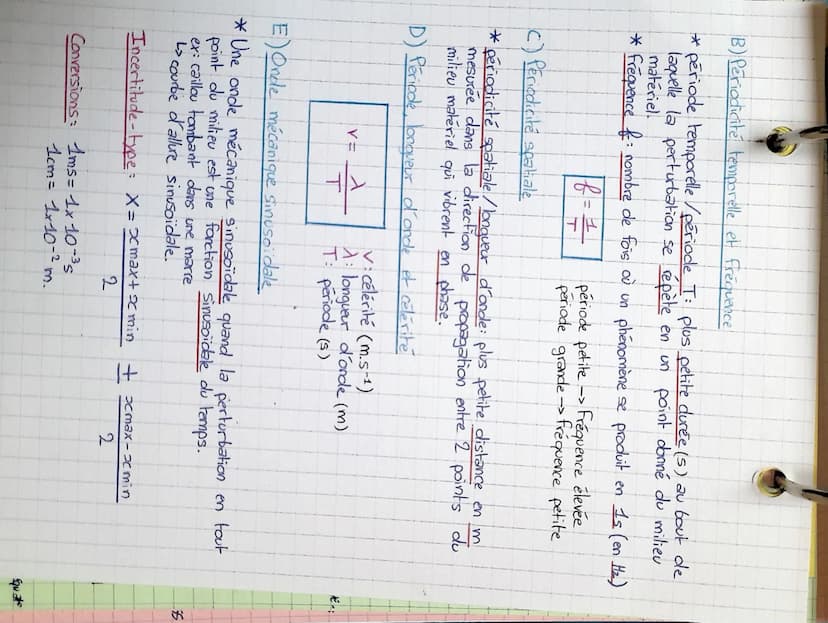 B) Périodicité temporelle et fréquence
* période temporelle/période T: plus petite durée (s) au bout de
laquelle la perturbation se répète en un point donné du milieu
matériel.
* fréquence f: nombre de fois où un phénomène se produit en 1s (en Hz)
f = 1/T
période petite → fréquence élevée
période grande → fréquence petite
C) Périodicité spatiale
* périodicité spatiale/longueur d'onde: plus petite distance en m
mesurée dans la direction de propagation entre 2 points du
milieu matériel qui vibrent en phase.
D) Période, longueur d'onde et célérité
v = λ/T
v: célérité (m.s⁻¹)
λ: longueur d'onde (m)
T: période (s)
E) Onde mécanique sinusoïdale
* Une onde mécanique sinusoïdale quand la perturbation en tout
point du milieu est une fonction sinusoïdale du temps.
ex: caillou tombant dans une marre
↳ courbe d'allure sinusoïdale.
Incertitude-type: X = (x max + x min)/2 ± (x max - x min)/2
Conversions: 1ms = 1x10⁻³ s
1cm = 1x10⁻² m.